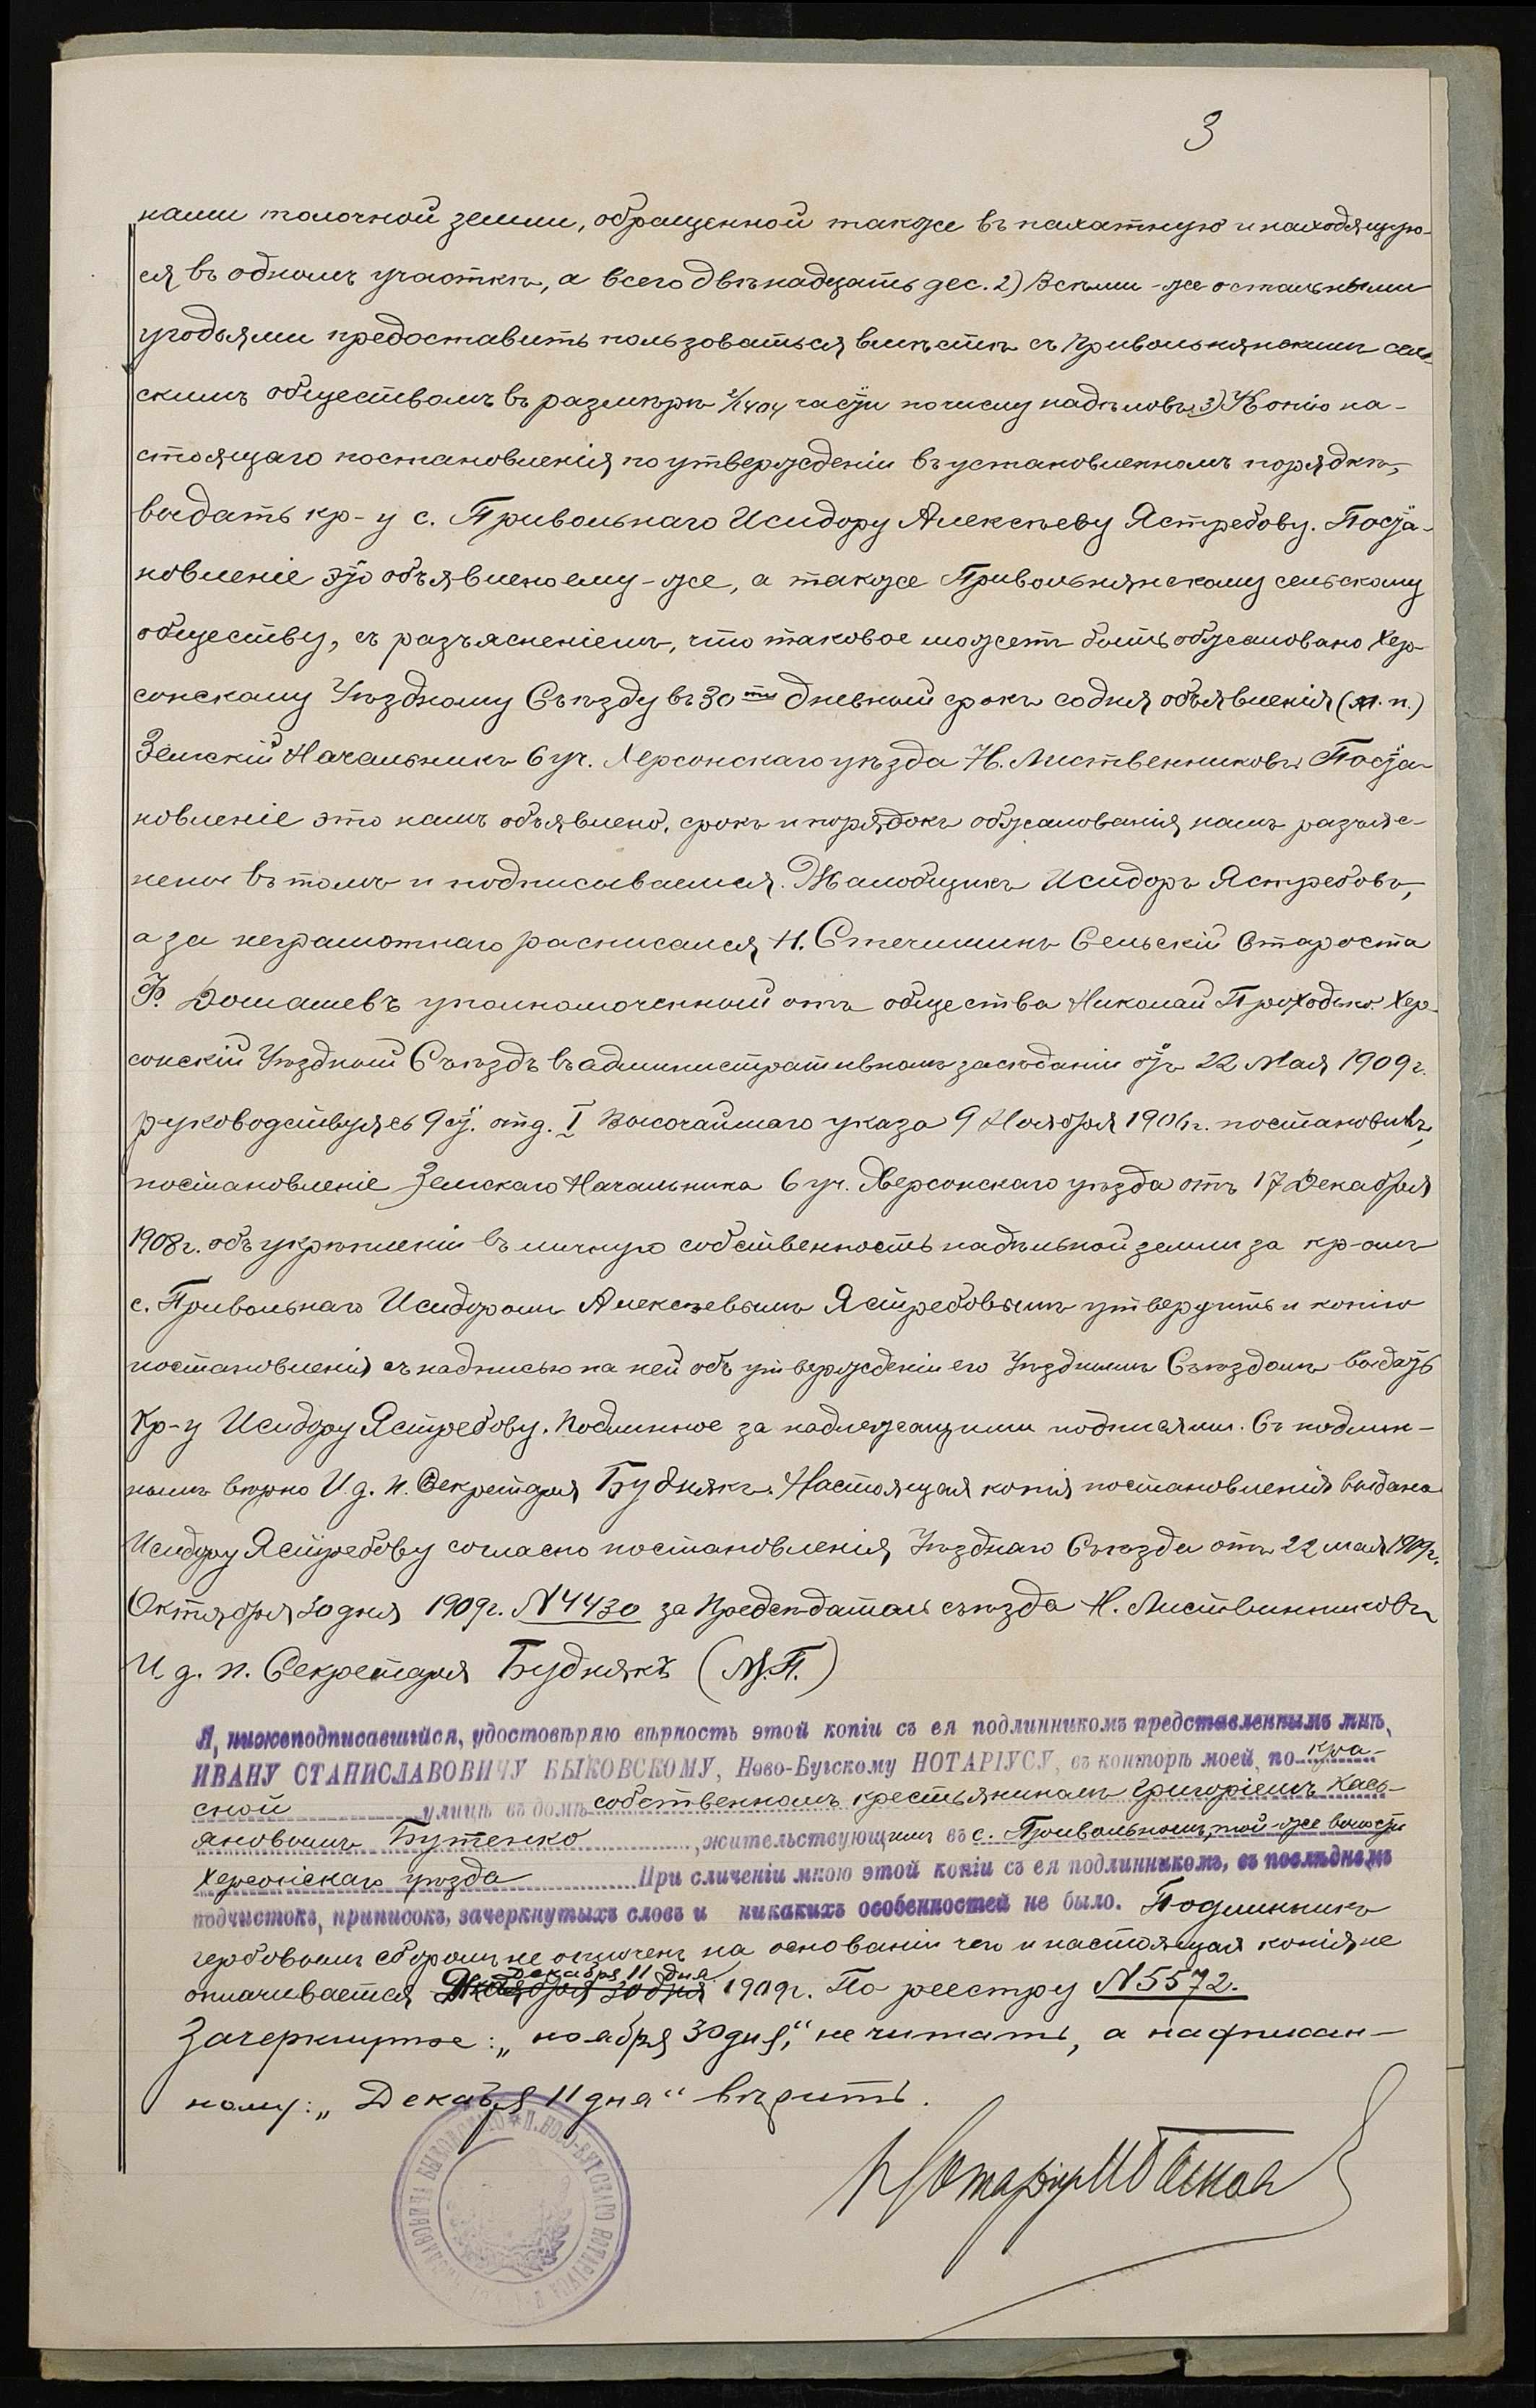 3
нами толочной земли, обращенной также въ пахатную и находящую-
ся въ одномъ участкѣ, а всего двѣнадцать дес. 2) Всѣми-же остальными
угодьями предоставить пользоваться вмѣстѣ съ Привольнянскимъ сель-
скимъ обществомъ въ размѣрѣ 2/1404 части по числу надѣловъ. 3) Копію на-
стоящаго постановленія по утвержденіи въ установленномъ порядкѣ,
выдать кр-у с. Привольнаго Исидору Алексѣеву Ястребову. Поста-
новленіе это объявлено ему-же, а также Привольнянскому сельскому
обществу, съ разъясненіемъ, что таковое можетъ быть обжаловано Хер-
сонскому Уѣздному Съѣзду въ 30ти дневный срокъ со дня объявленія (м.п.)
Земскій Начальникъ 6 уч. Херсонскаго уѣзда Н. Лиственниковъ Поста-
новленіе это намъ объявлено, срокъ и порядокъ обжалованія намъ разъяс-
нены въ томъ и подписываемся. Жалобщикъ Исидоръ Ястребовъ,
а за неграмотнаго расписался Н. Сельскій Староста
Ф. Домашевъ уполномоченный отъ общества Николай Приходько. Хер-
сонскій Уѣздный Съѣздъ въ административномъ засѣданіи отъ 22 Мая 1909 г.
руководствуясь 9 ст. отд. I Высочайшаго указа 9 Ноября 1906 г. постановилъ,
постановленіе Земскаго Начальника 6 уч. Херсонскаго уѣзда отъ 17 Декабря
1908 г. объ укрѣпленіи въ личную собственность надѣльной земли за кр-омъ
с. Привольнаго Исидоромъ Алексѣевымъ Ястребовымъ утвердить и копію
постановленія съ надписью на ней объ утвержденіи его Уѣзднымъ Съѣздомъ выдать
Кр-у Исидору Ястребову. Подлинное за надлежащими подписями. Съ подлин-
нымъ вѣрно И. д. п. Секретаря Буднякъ. Настоящая копія постановленія выдана
Исидору Ястребову согласно постановленія Уѣзднаго Съѣзда отъ 22 мая 1909 г.
Октября 30 дня 1909 г. № 4430 за Предсѣдатель съѣзда Н. Листвинниковъ
И. д. п. Секретаря Буднякъ (М.П.)
Я, нижеподписавшійся, удостовѣряю вѣрность этой копіи съ ея подлинникомъ представленнымъ мнѣ,
ИВАНУ СТАНИСЛАВОВИЧУ БЫКОВСКОМУ, Ново-Бугскому НОТАРІУСУ, въ конторѣ моей, по Кра-
сной улицѣ въ домѣ собственномъ крестьяниномъ Григоріемъ Кась-
яновымъ Бутенко, жительствующимъ въ с. Привольномъ, той-же волости
Херсонскаго уѣзда При сличеніи мною этой копіи съ ея подлинникомъ, въ послѣднемъ
подчистокъ, приписокъ, зачеркнутыхъ словъ и никакихъ особенностей не было. Подлинникъ
гербовымъ сборомъ не оплоченъ на основаніи чего и настоящая копія не
оплачивается Декабря 11 дня 1909 г. По реестру № 5572.
Зачеркнутое: „ноября 30 дня“, не читать, а надписан-
ному: „Декабря 11 дня“ вѣрить.
Нотаріусъ